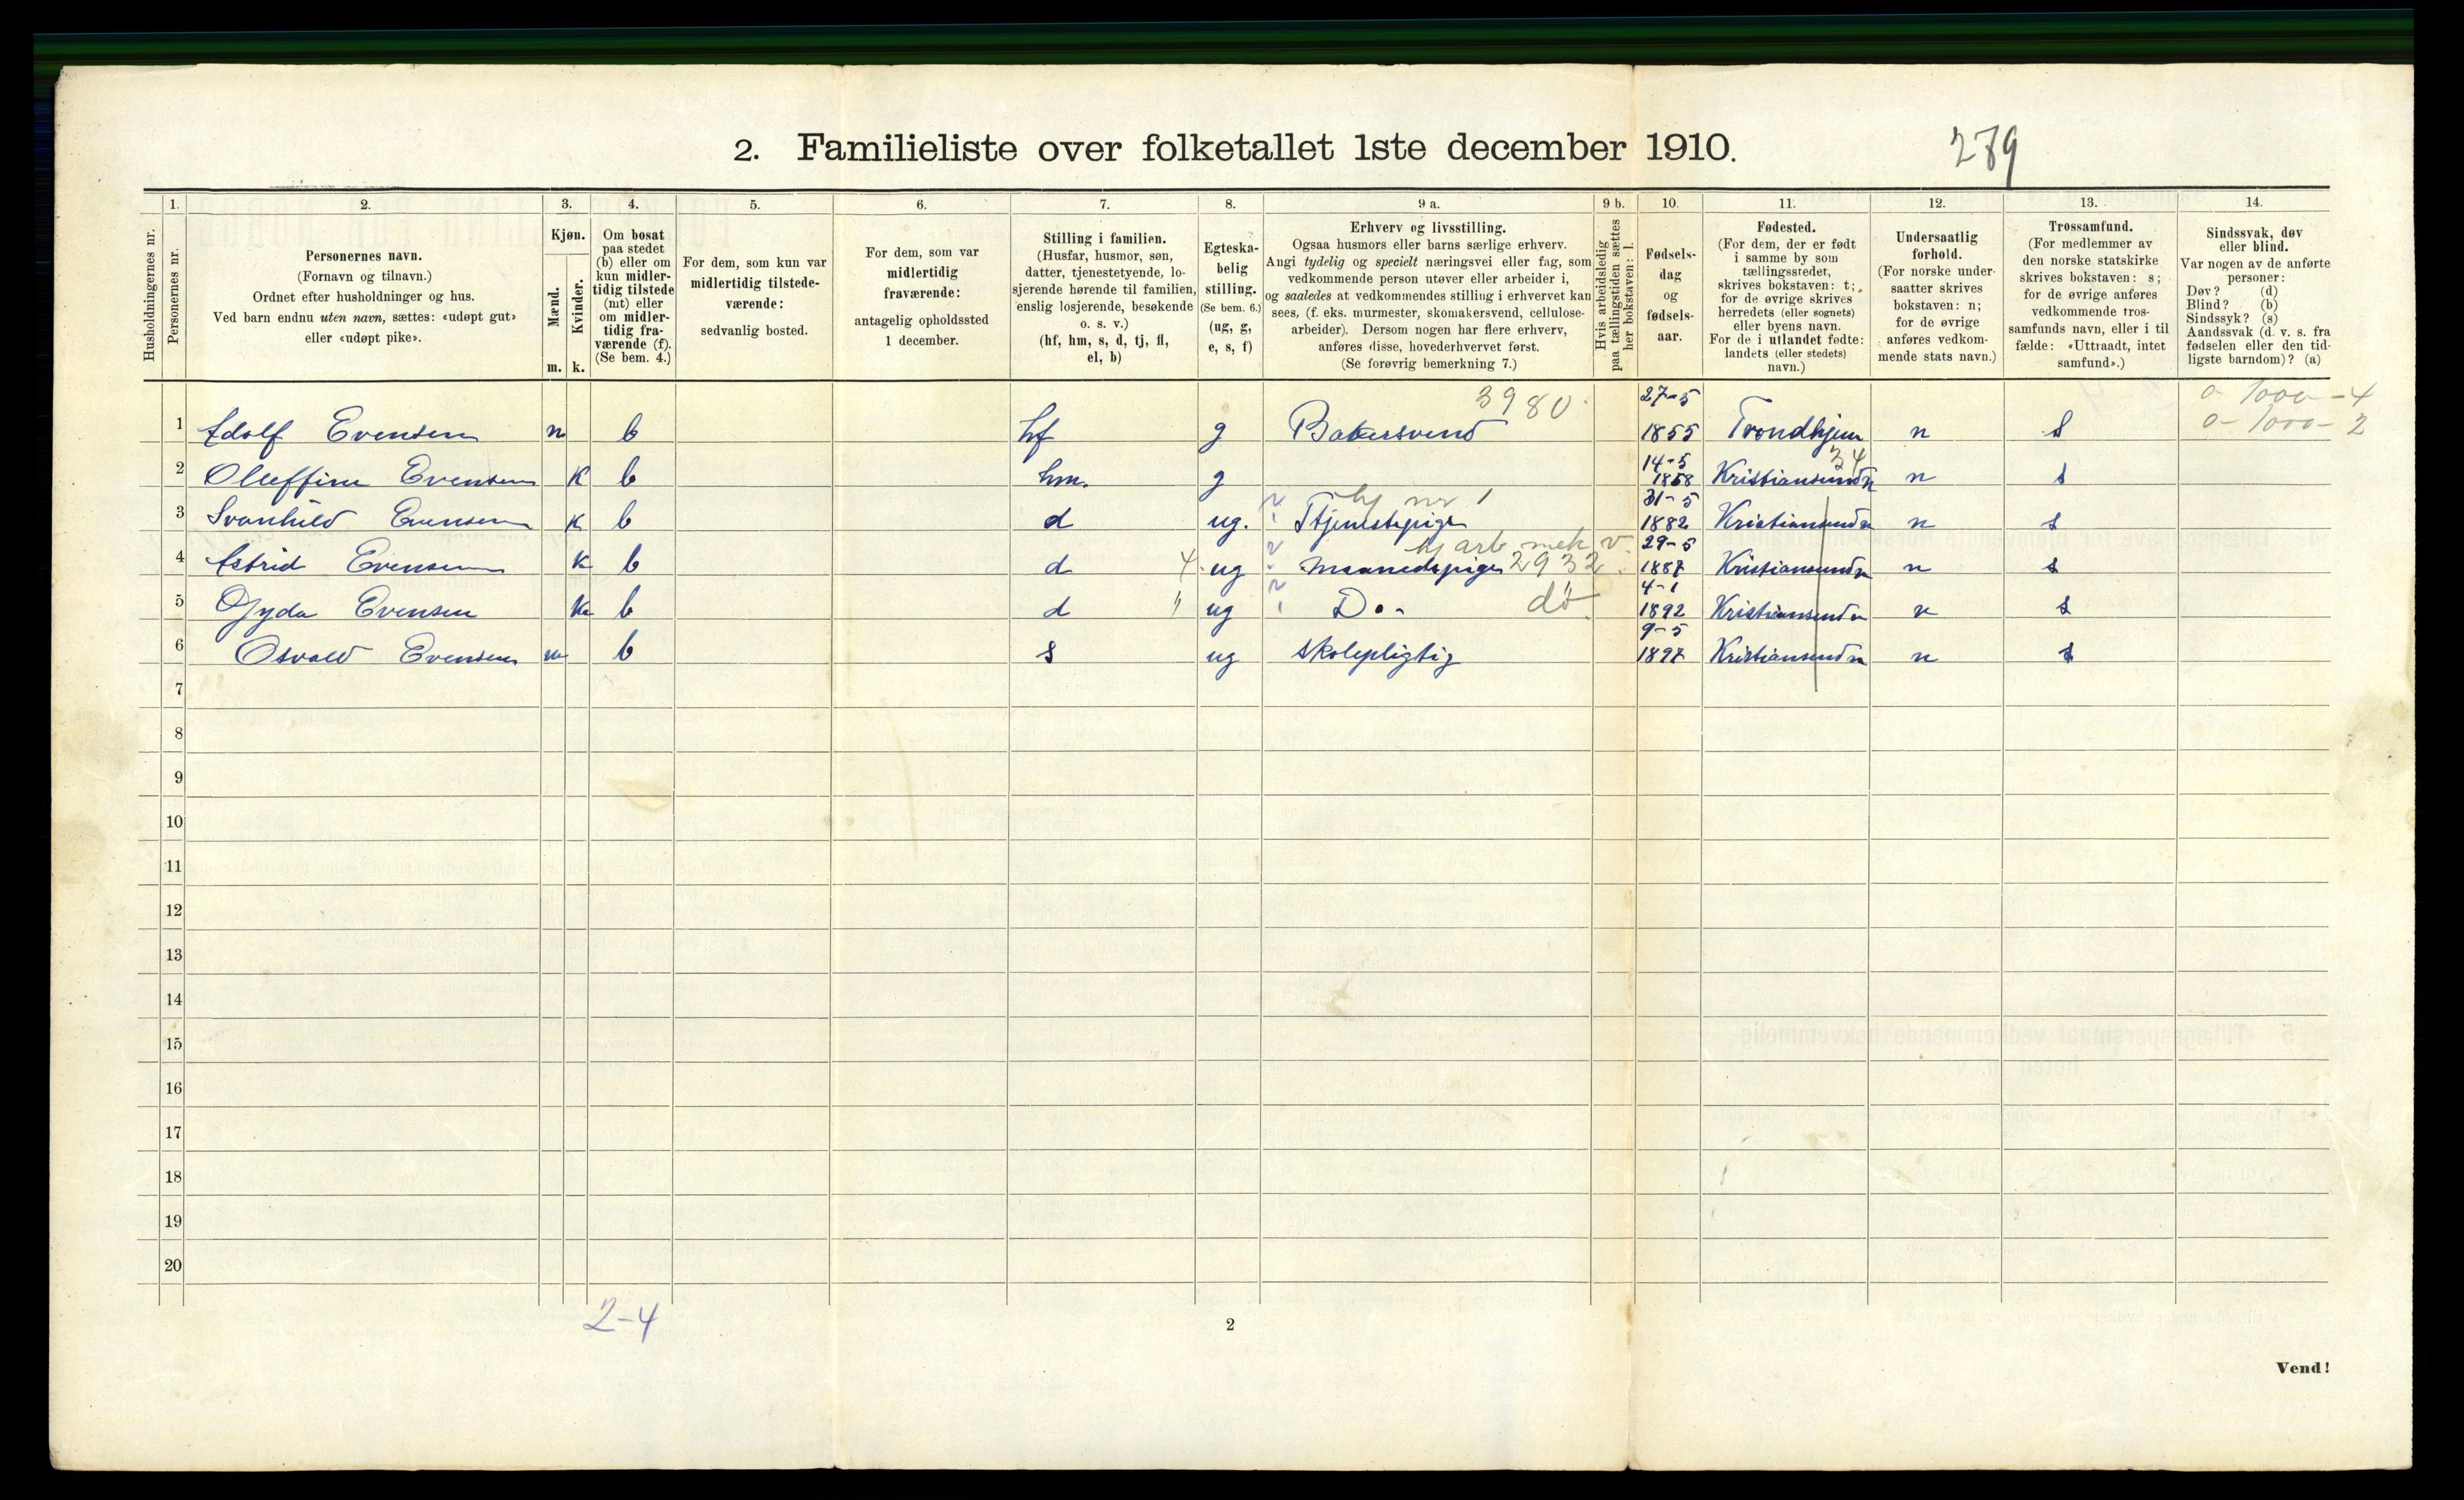 2. Familieliste over folketallet 1ste december 1910.
279
1. 2. 3. 4. 5. 6. 7. 8. 9 a. 9 b. 10. 11. 12. 13. 14.
Husholdningernes nr.
Personernes nr.
Personernes navn.
(Fornavn og tilnavn.)
Ordnet efter husholdninger og hus.
Ved barn endnu uten navn, sættes: «udøpt gut»
eller «udøpt pike».
Kjøn.
Mænd.
Kvinder.
m. k.
Om bosat
paa stedet
(b) eller om
kun midler-
tidig tilstede
(mt) eller
om midler-
tidig fra-
værende (f).
(Se bem. 4.)
For dem, som kun var
midlertidig tilstede-
værende:
sedvanlig bosted.
For dem, som var
midlertidig
fraværende:
antagelig opholdssted
1 december.
Stilling i familien.
(Husfar, husmor, søn,
datter, tjenestetyende, lo-
sjerende hørende til familien,
enslig losjerende, besøkende
o. s. v.)
(hf, hm, s, d, tj, fl,
el, b)
Egteska-
belig
stilling.
(Se bem. 6.)
(ug, g,
e, s, f)
Erhverv og livsstilling.
Ogsaa husmors eller barns særlige erhverv.
Angi tydelig og specielt næringsvei eller fag, som
vedkommende person utøver eller arbeider i,
og saaledes at vedkommendes stilling i erhvervet kan
sees, (f. eks. murmester, skomakersvend, cellulose-
arbeider). Dersom nogen har flere erhverv,
anføres disse, hovederhvervet først.
(Se forøvrig bemerkning 7.)
Hvis arbeidsledig
paa tællingstiden sættes
her bokstaven: l.
Fødsels-
dag
og
fødsels-
aar.
Fødested.
(For dem, der er født
i samme by som
tællingsstedet,
skrives bokstaven: t;
for de øvrige skrives
herredets (eller sognets)
eller byens navn.
For de i utlandet fødte:
landets (eller stedets)
navn.)
Undersaatlig
forhold.
(For norske under-
saatter skrives
bokstaven: n;
for de øvrige
anføres vedkom-
mende stats navn.)
Trossamfund.
(For medlemmer av
den norske statskirke
skrives bokstaven: s;
for de øvrige anføres
vedkommende tros-
samfunds navn, eller i til-
fælde: «Uttraadt, intet
samfund».)
Sindssvak, døv
eller blind.
Var nogen av de anførte
personer:
Døv? (d)
Blind? (b)
Sindssyk? (s)
Aandssvak (d. v. s. fra
fødselen eller den tid-
ligste barndom)? (a)
3980 27-5 0-1000-4
1 Adolf Evensen m b hf g Bakersvend 1855 Trondhjem n s 0-1000-2
14-5 34
2 Oluffine Evensen k b hm. g 1858 Kristiansund n n s
hj nr 1 31-5
3 Svanhild Evensen k b d ug. Tjenestepige 1882 Kristiansund n n s
hj arb mek v. 29-5
4 Astrid Evensen k b d 4. ug Maanedspige 2932. 1887 Kristiansund n n s
4-1
5 Gyda Evensen k b d " ug Do- do 1892 Kristiansund n n s
9-5
6 Osvald Evensen m b s ug Skolepligtig 1897 Kristiansund n n s
7
8
9
10
11
12
13
14
15
16
17
18
19
20
2-4
2
Vend!